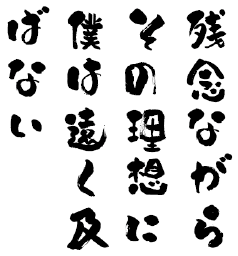 残念ながら
その理想に
僕は遠く及
ばない